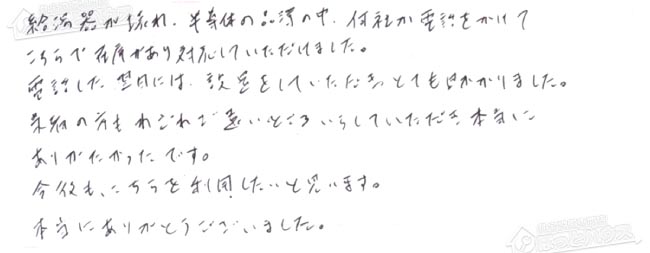 給湯器が壊れ、半導体の品薄の中、何社か電話をかけて
こちらで在庫があり対応していただけました。
電話した翌日には、設置をしていただきとても助かりました。
見積の方もわざわざ遠いところいらしていただき本当に
ありがたかったです。
今後も、こちらを利用したいと思います。
本当にありがとうございました。